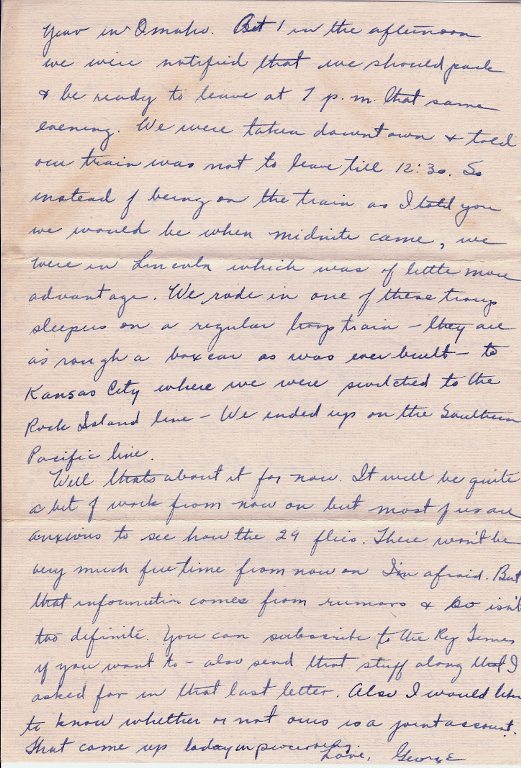 Year in Omaha. But 1 in the afternoon
we were notified that we should pack
& be ready to leave at 7 p.m. that same
evening. We were taken downtown & told
our train was not to leave till 12:30. So
instead of being on the train as I told you
we would be when midnite came, we
were in Lincoln which was of little more
advantage. We rode in one of these troop
sleepers on a regular troop train – they are
as rough a boxcar as was ever built – to
Kansas City where we were switched to the
Rock Island line – We ended up on the Southern
Pacific line.
Well thats about it for now. It will be quite
a bit of work from now on but most of us are
anxious to see how the 29 flies. There won't be
very much free time from now on I'm afraid. But
that information comes from rumors & so isn't
too definite. You can subscribe to the Reg Times
if you want to – also send that stuff along that I
asked for in that last letter. Also I would like
to know whether or not ours is a joint account.
That came up today in processing.
Love, George